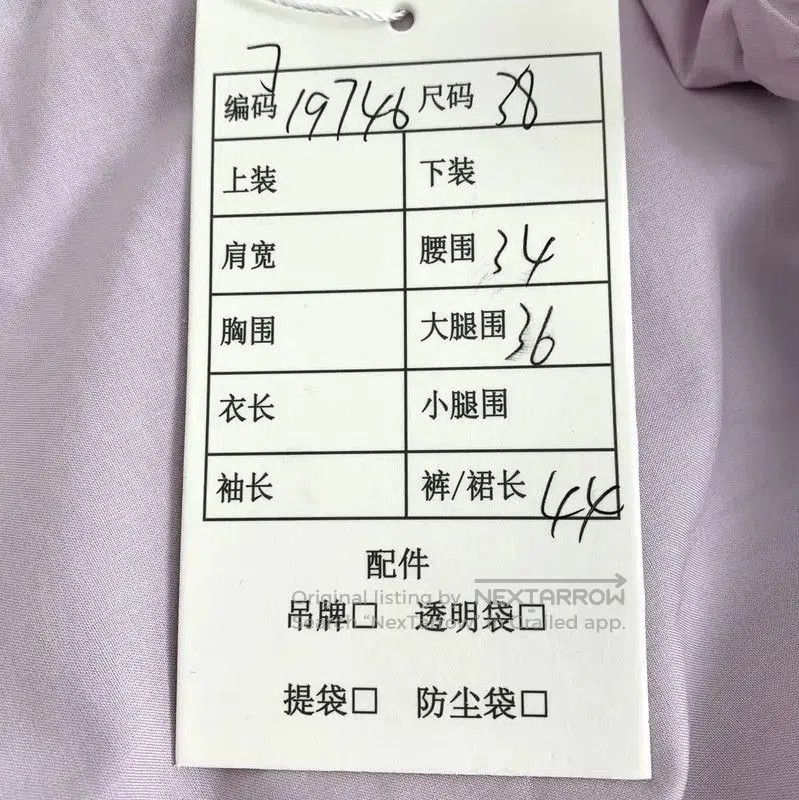 フ
编码 19746 尺码 38
上装 下装
肩宽 腰围 34
胸围 大腿围 36
衣长 小腿围
袖长 裤/裙长 44
配件
Original listing by NEXTARROW
吊牌□ 透明袋□
Search "NexTarrow" in Grailed app.
提袋□ 防尘袋□